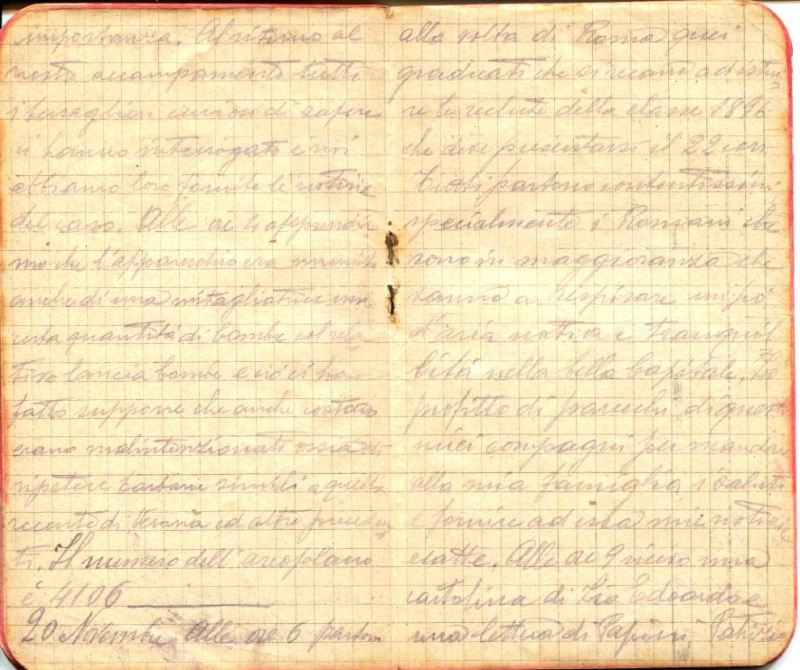 importanza. Al ritorno al
nostro accampamento tutti
i bersaglieri curiosi di sapere
ci hanno interrogato e noi
abbiamo loro fornite le notizie
del caso. Alle ore 4 apprendia
mo che l'apparecchio era munito
anche di una mitagliatrice una
certa quantità di bombe col rela
tivo lancia bombe e ciò ci ha
fatto supporre che anche costoro
erano malintenzionati ossia di
ripetere barbarie simili a quella
recente di Verona ed altre preceden
ti. Il numero dell'areoplano
è 4106
20 Novembre Alle ore 6 partono
alla volta di Roma quei
graduati che si recano ad istrui
re le reclute della classe 1896
che deve presentarsi il 22 corr.
Tutti partono contentissimi
specialmente i Romani che
sono in maggioranza che
vanno a respirare un pò
d'aria nativa e tranquil
lità nella bella Capitale. Io
profitto di parecchi di questi
miei compagni per mandare
alla mia famiglia i saluti
e fornire ad essa mie notizie
esatte. Alle ore 9 ricevo una
cartolina di Zio Edoardo e
una lettera di Papini